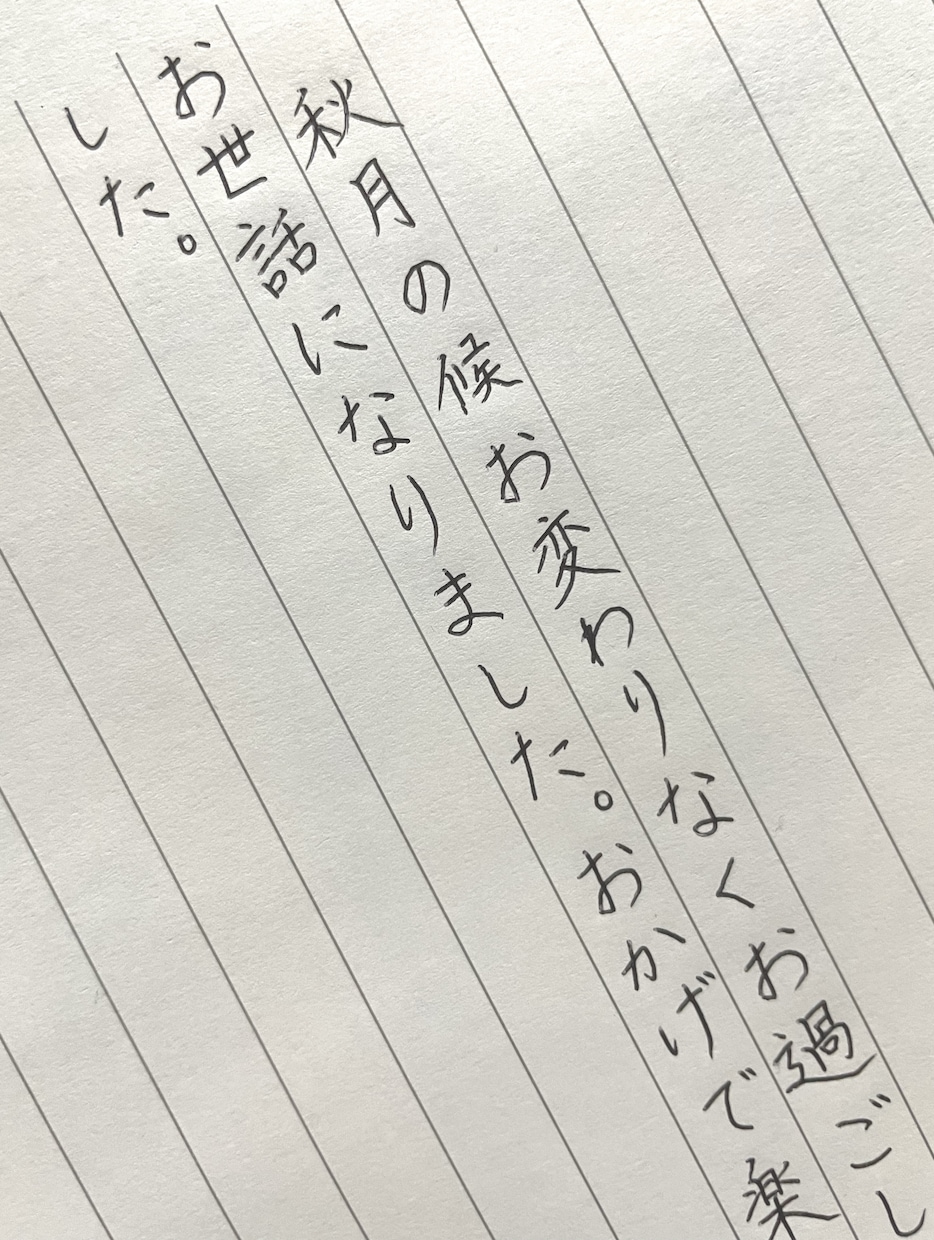 秋月の候お変わりなくお過ごし
お世話になりました。おかげで楽
した。